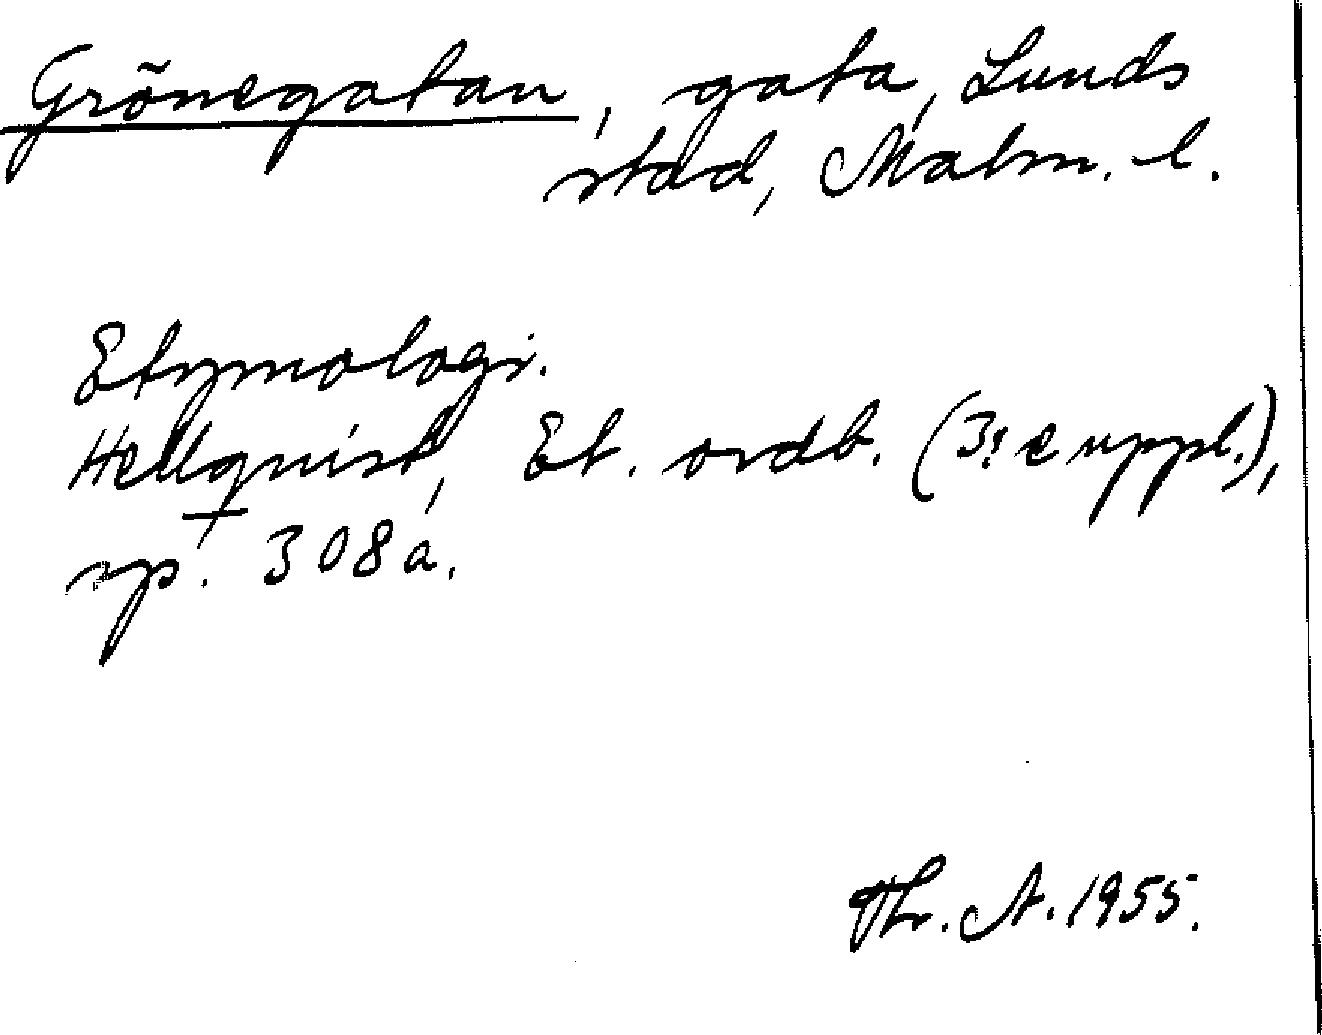 Grönegatan, gata, Lunds
stad, Malm. l.
Etymologi.
Hellquist, Et. ordb. (3:e uppl.),
sp. 308 a.
Th. A. 1955.